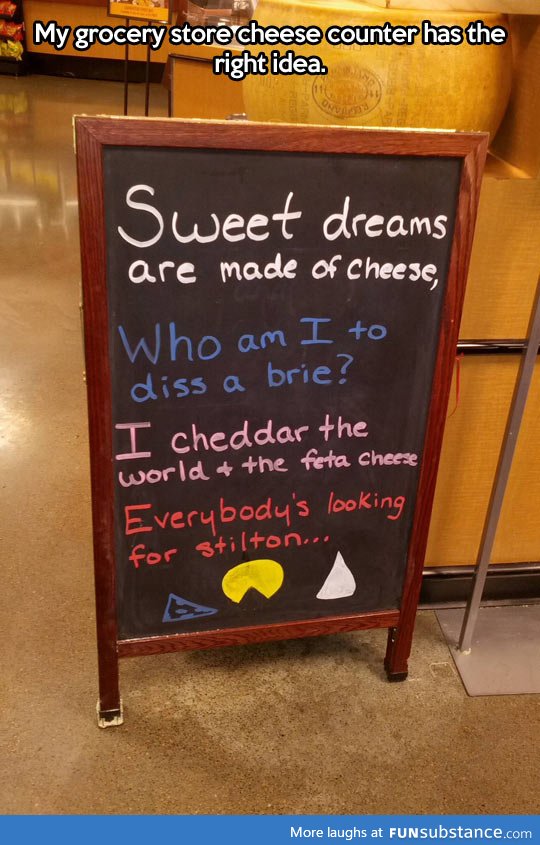 My grocery store cheese counter has the
right idea.
Sweet dreams
are made of cheese,
Who am I to
diss a brie?
I cheddar the
world + the feta cheese
Everybody's looking
for stilton...
More laughs at FUNsubstance.com